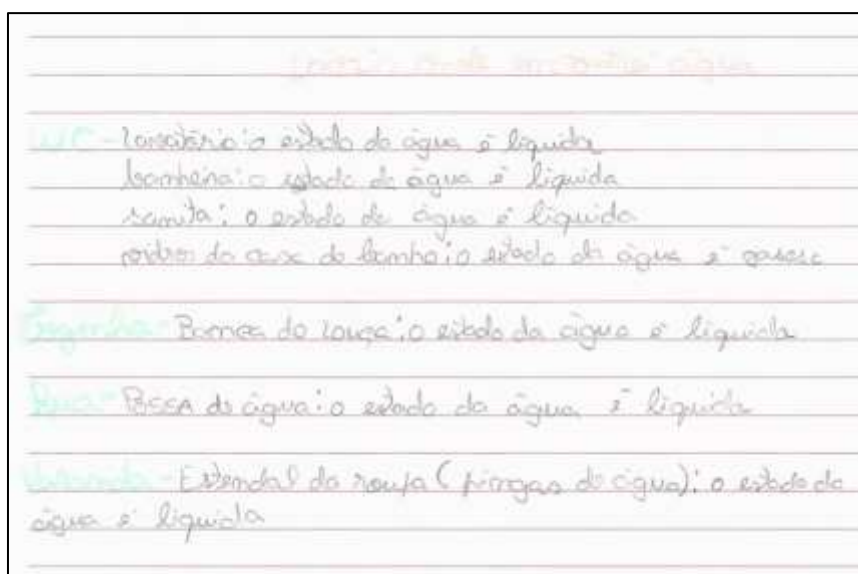 onde encontrei água
WC - Lavatório: o estado da água é líquida
banheira: o estado da água é líquida
sanita: o estado da água é líquida
vidros da casa de banho: o estado da água é gasoso
Banca da louça: o estado da água é líquida
Rua - Possa de água: o estado da água é líquida
Varanda - Estendal da roupa (pingas de água): o estado da
água é líquida